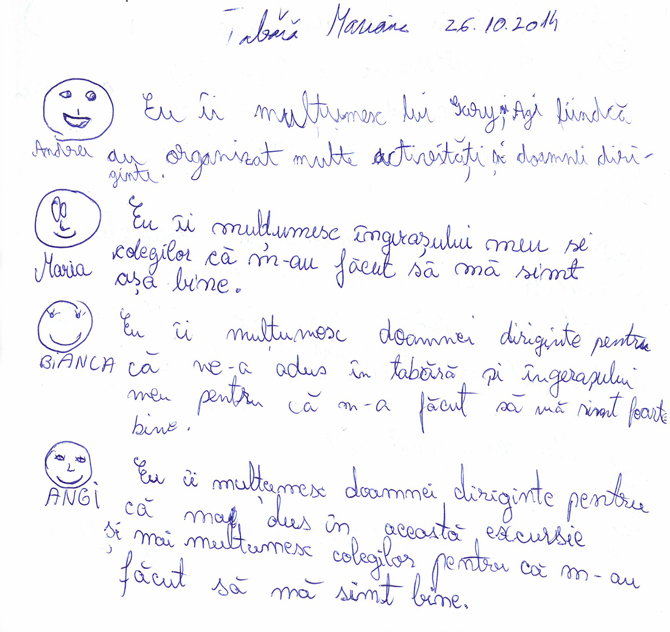 Tabără Mariana 26.10.2014
Eu îi mulțumesc lui Gary și Agi fiindcă
Andrea au organizat multe activități și doamnei diri-
ginte.
Eu îi muldumesc îngerașului meu si
colegilor că m-au făcut să mă simt
Maria așa bine.
Eu îi mulțumesc doamnei diriginte pentru
BIANCA că ne-a adus în tabără și îngerașului
meu pentru că m-a făcut să mă simt foarte
bine.
Eu îi multumesc doamnei diriginte pentru
ANGI că dus în această excursie
și mai multumesc colegilor pentru că m-au
făcut să mă simt bine.